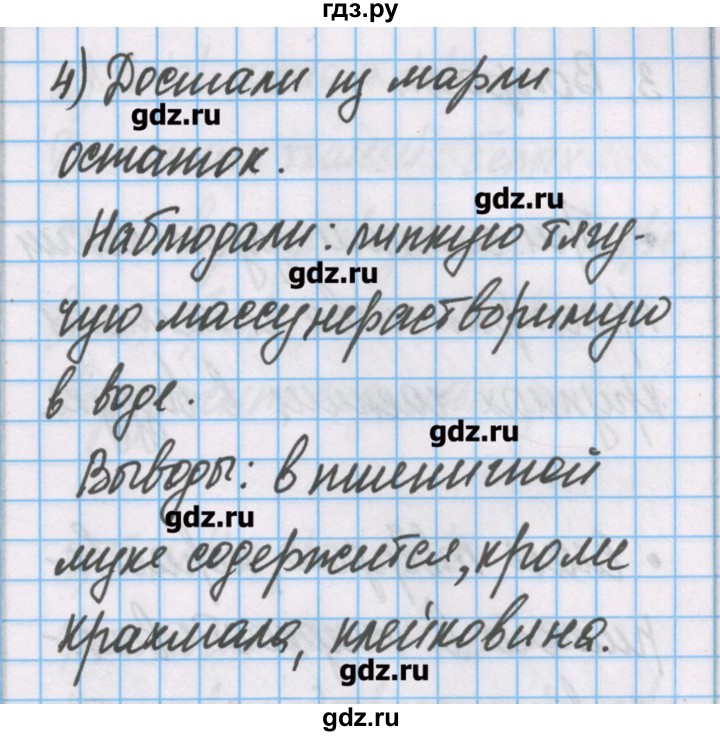 гдз.ру
4) Достали из марли
gdz.ru
остаток.
gdz.ru
Наблюдали: липкую тягу-
gdz.ru
чую массу нерастворимую
в воде.
gdz.ru
Выводы: в пшеничной
gdz.ru
муке содержится, кроме
крахмала, клейковина.
gdz.ru
gdz.ru